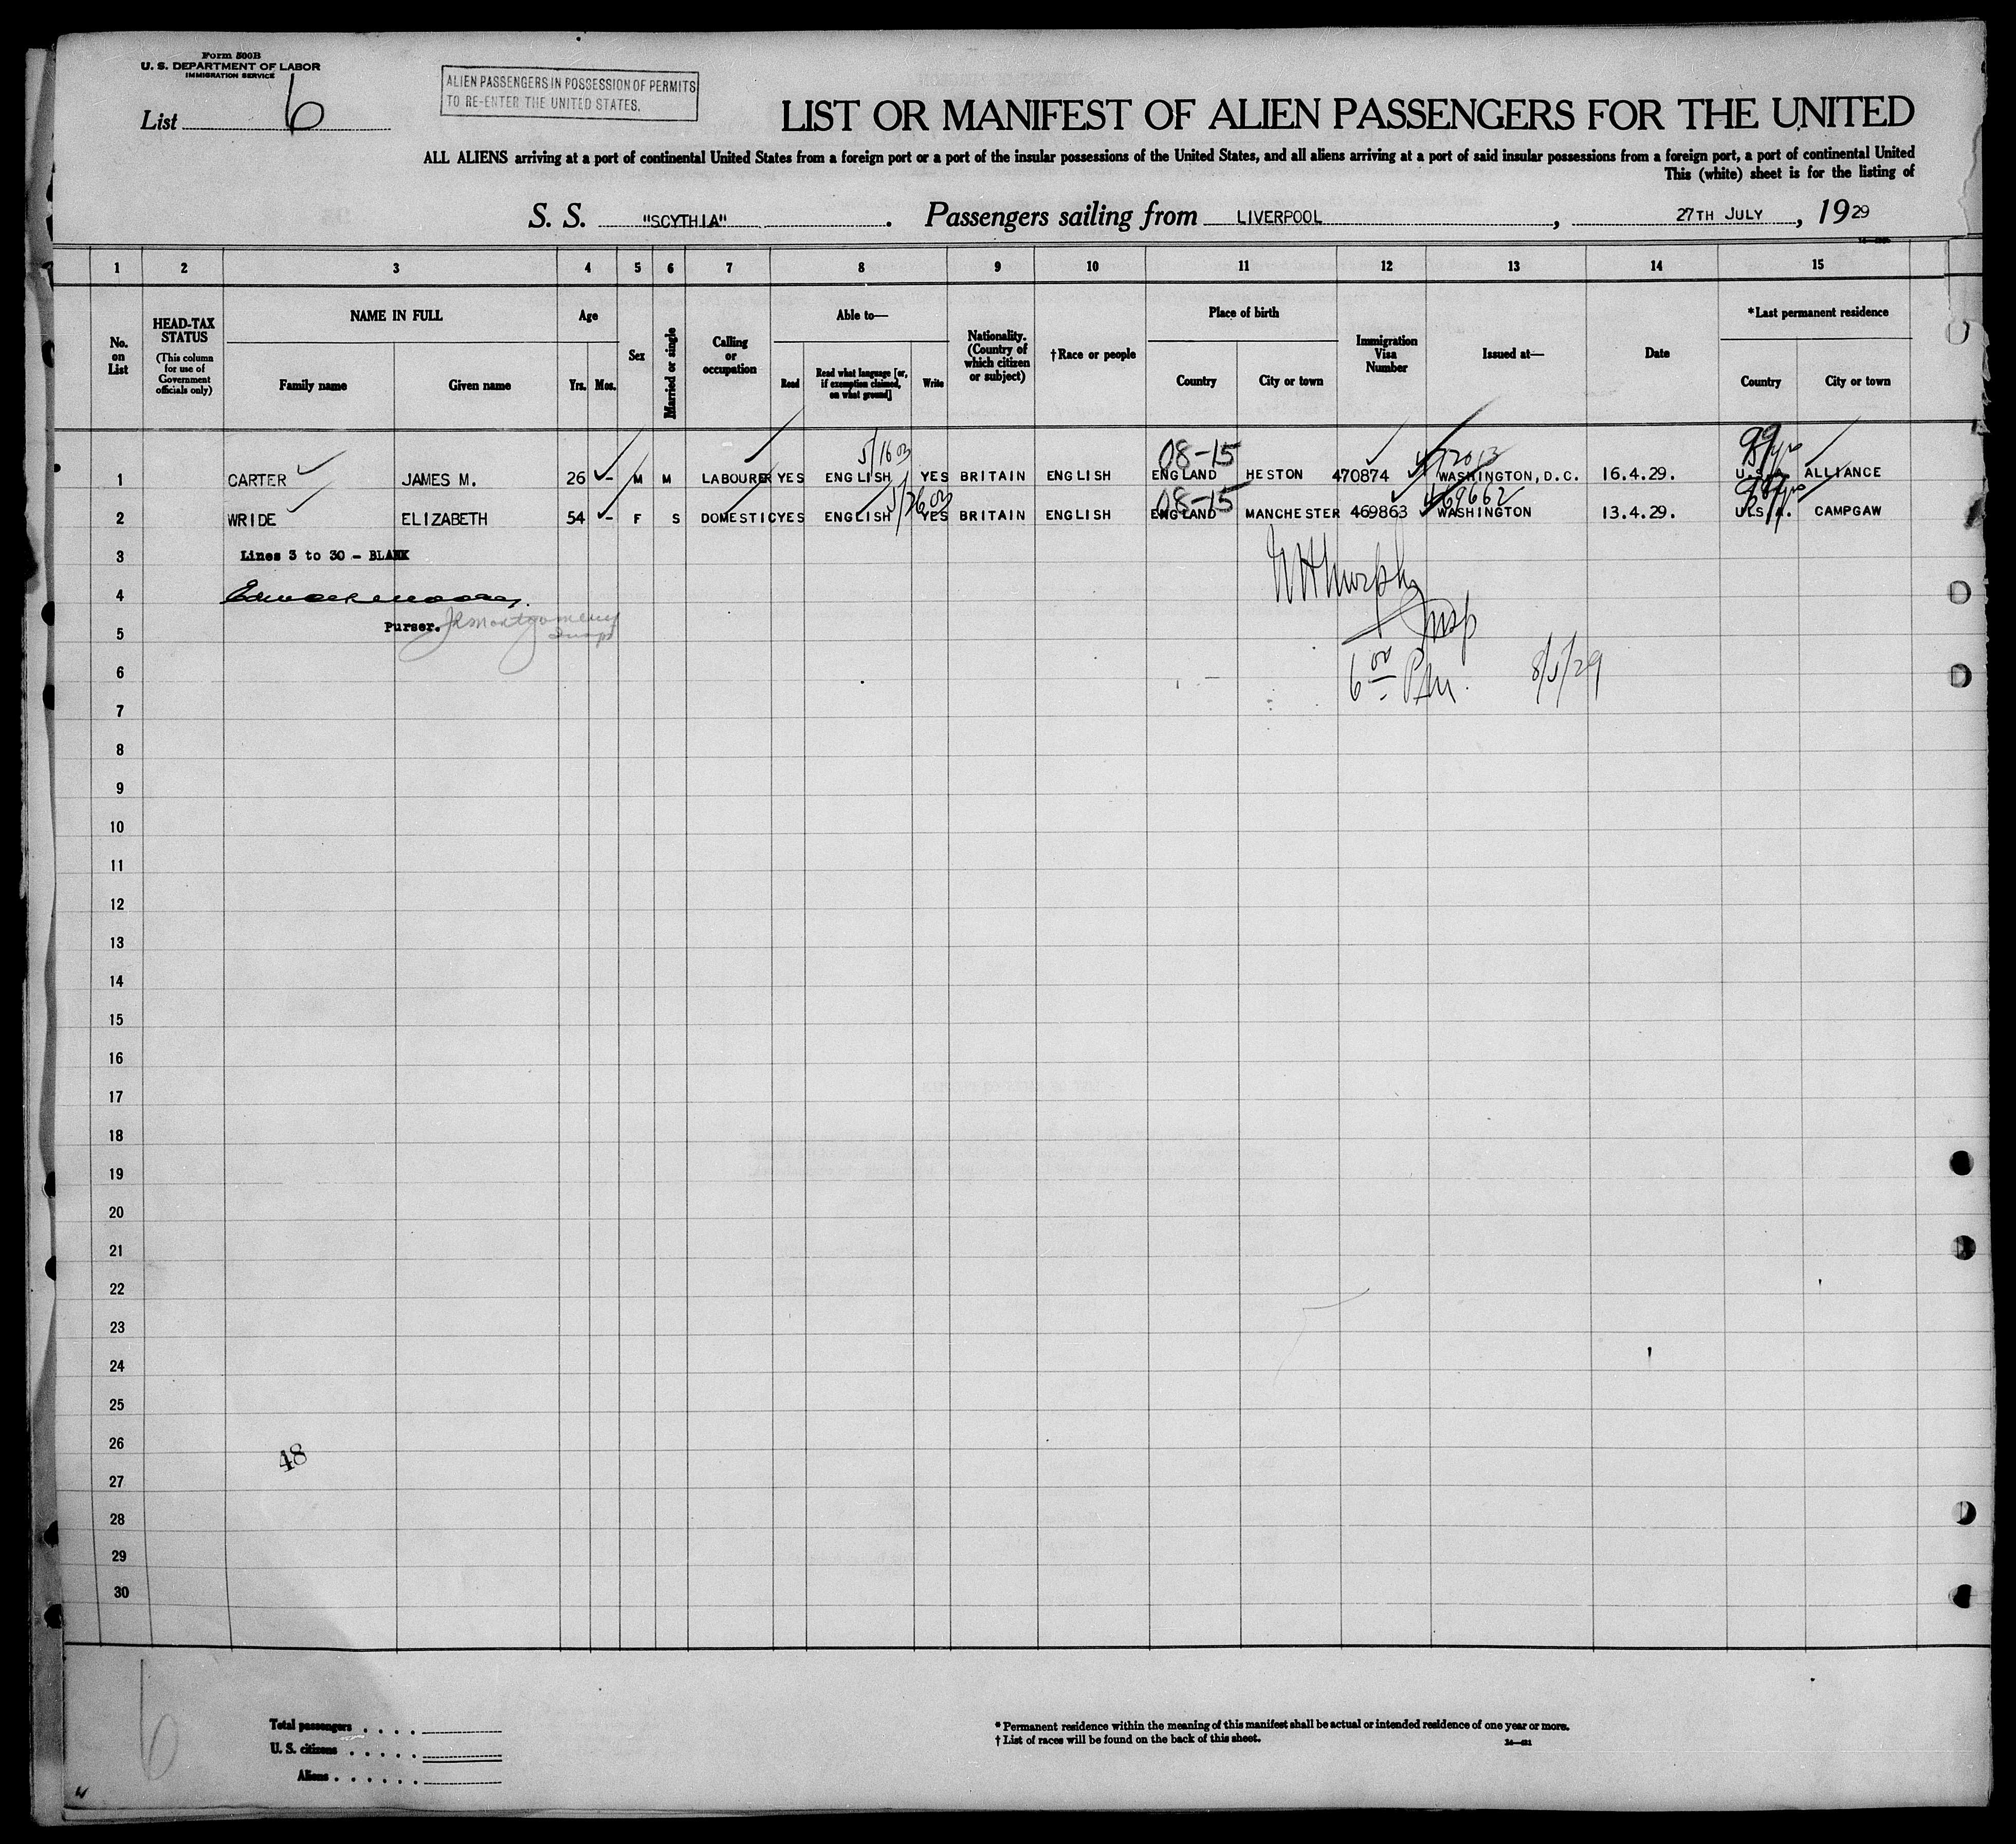 Form 500B
U. S. DEPARTMENT OF LABOR
IMMIGRATION SERVICE
List 6
ALIEN PASSENGERS IN POSSESSION OF PERMITS
TO RE-ENTER THE UNITED STATES.
LIST OR MANIFEST OF ALIEN PASSENGERS FOR THE UNITED
ALL ALIENS arriving at a port of continental United States from a foreign port or a port of the insular possessions of the United States, and all aliens arriving at a port of said insular possessions from a foreign port, a port of continental United
This (white) sheet is for the listing of
S. S. "SCYTHIA". Passengers sailing from LIVERPOOL, 27TH JULY, 1929
1 2 3 4 5 6 7 8 9 10 11 12 13 14 15
No. on List
HEAD-TAX STATUS
(This column for use of Government officials only)
NAME IN FULL
Family name Given name
Age
Yrs. Mos.
Sex
Married or single
Calling or occupation
Able to—
Read
Read what language [or, if exemption claimed, on what ground]
Write
Nationality. (Country of which citizen or subject)
†Race or people
Place of birth
Country City or town
Immigration Visa Number
Issued at—
Date
*Last permanent residence
Country City or town
08-15
1 CARTER JAMES M. 26 - M M LABOURER YES ENGLISH YES BRITAIN ENGLISH ENGLAND HESTON 470874 WASHINGTON, D.C. 16.4.29. U.S.A. ALLIANCE
08-15 469662
2 WRIDE ELIZABETH 54 - F S DOMESTIC YES ENGLISH YES BRITAIN ENGLISH ENGLAND MANCHESTER 469863 WASHINGTON 13.4.29. U.S.A. CAMPGAW
3 Lines 3 to 30 - BLANK
4 W H Murphy
5 Purser. J R Montgomery Insp
6 6 00 P.M. 8/5/29
7
8
9
10
11
12
13
14
15
16
17
18
19
20
21
22
23
24
25
26
48
27
28
29
30
6
Total passengers . . . .
U. S. citizens . . . . .
Aliens . . . . . .
* Permanent residence within the meaning of this manifest shall be actual or intended residence of one year or more.
† List of races will be found on the back of this sheet.